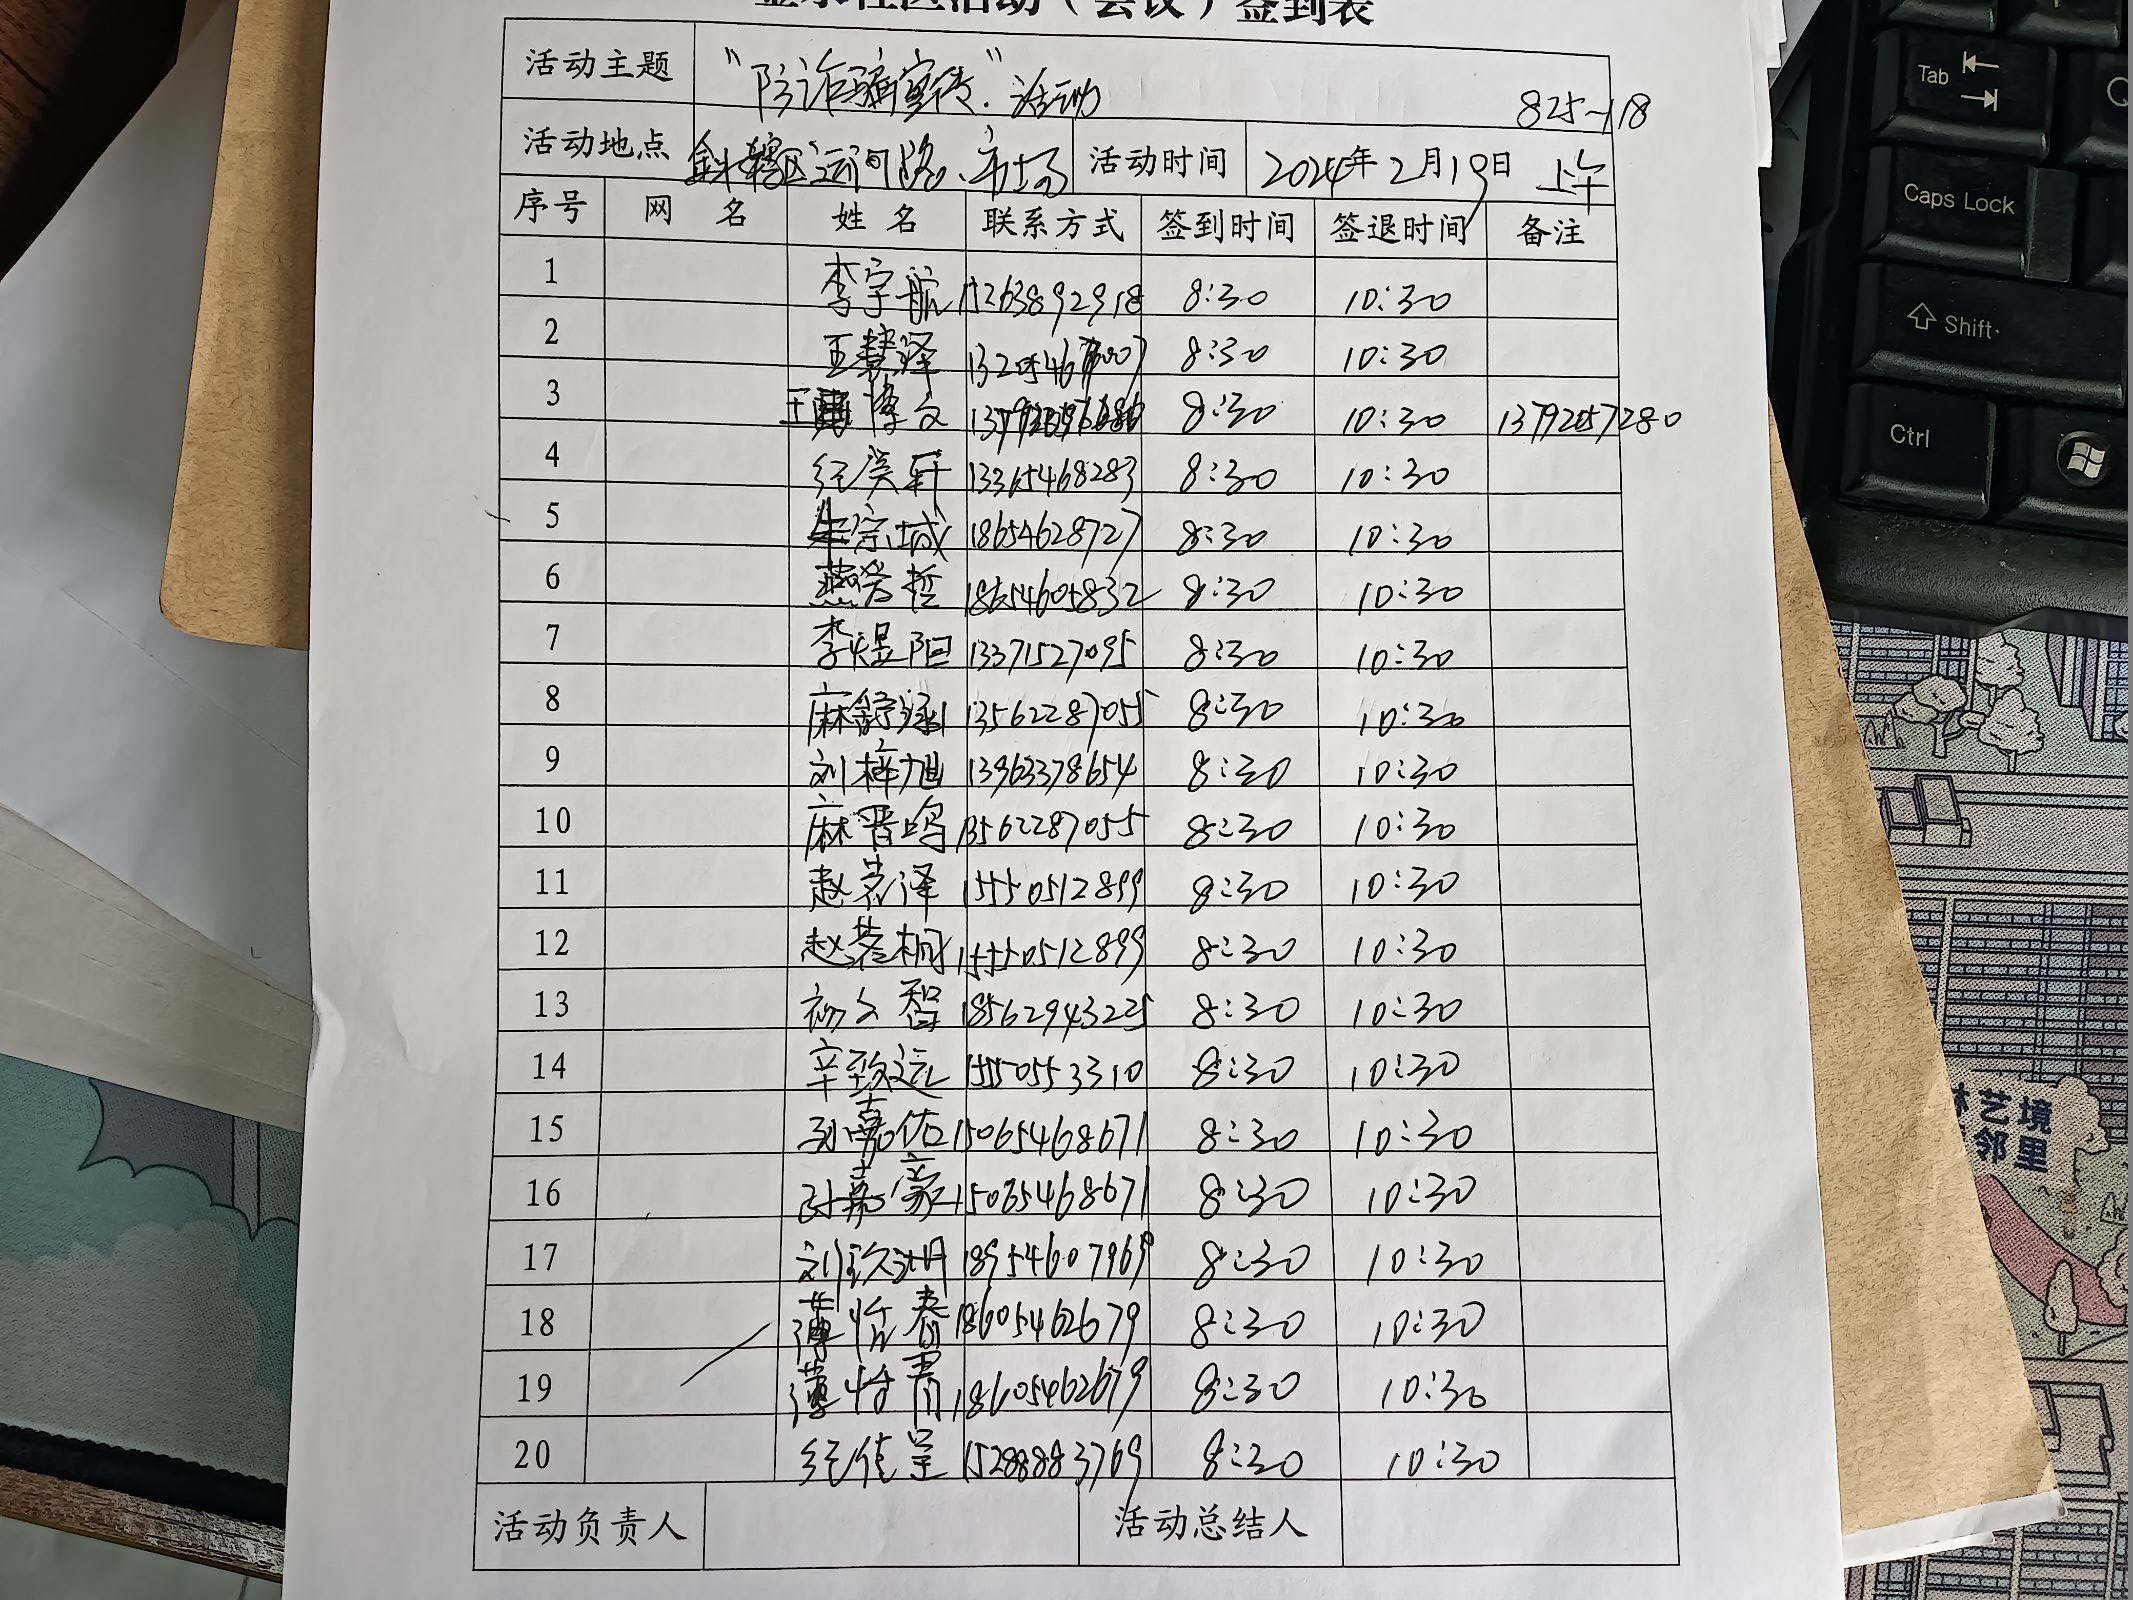 社区活动（会议）签到表
活动主题 “防诈骗宣传”活动 825-118
活动地点 辖区运河路、市场 活动时间 2024年2月19日 上午
序号 网 名 姓 名 联系方式 签到时间 签退时间 备注
1 李宇航 15263892918 8:30 10:30
2 王慧泽 8:30 10:30
3 王博文 8:30 10:30 13792057280
4 纪昊轩 13365468283 8:30 10:30
5 牟宗城 18654628727 8:30 10:30
6 燕希哲 18654605832 8:30 10:30
7 李煜阳 13371527095 8:30 10:30
8 麻舒涵 13562287055 8:30 10:30
9 刘梓旭 13963378654 8:30 10:30
10 麻晋鸣 13562287055 8:30 10:30
11 赵茗泽 15550512899 8:30 10:30
12 赵若桐 15550512899 8:30 10:30
13 初文智 18562943225 8:30 10:30
14 辛致远 15550553310 8:30 10:30
15 孙嘉佑 15065468671 8:30 10:30
16 孙嘉豪 15065468671 8:30 10:30
17 刘玖玥 18954607969 8:30 10:30
18 薄怡春 18605462679 8:30 10:30
19 薄怡青 18605462679 8:30 10:30
20 纪佳呈 15288883769 8:30 10:30
活动负责人 活动总结人
Tab
Caps Lock
Shift
Ctrl
艺境
邻里